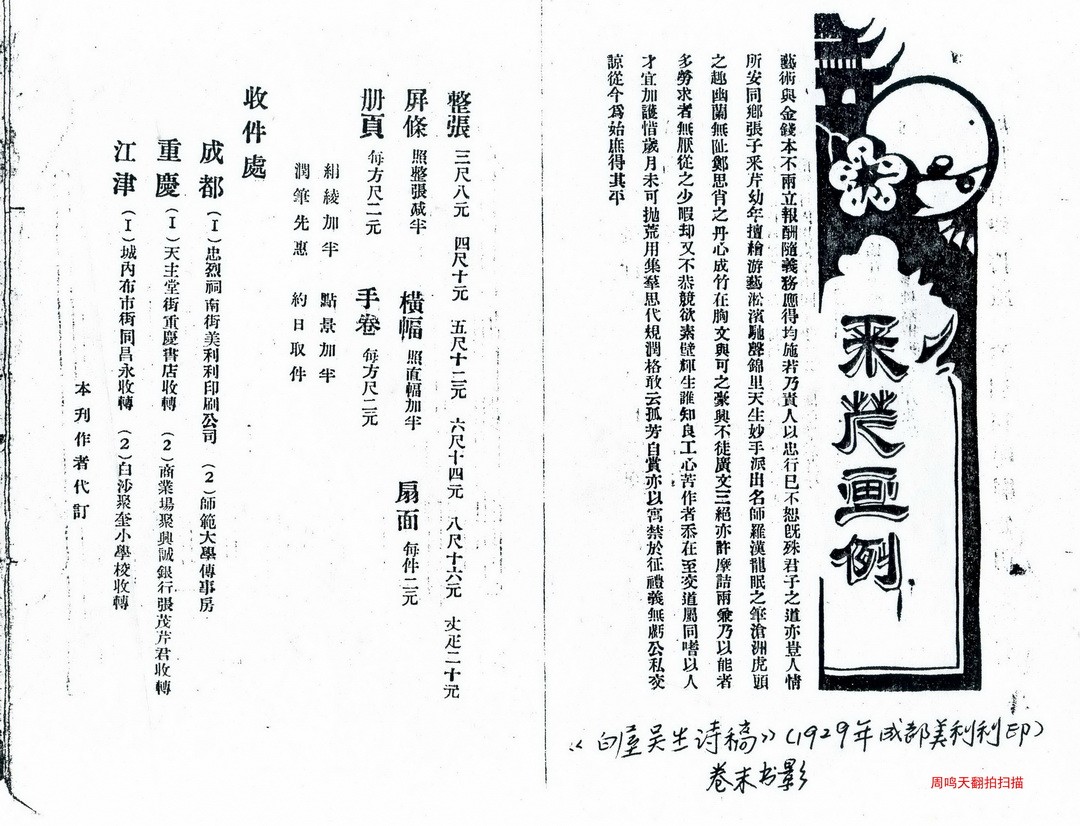 采芹画例
藝術與金錢本不兩立報酬隨義務應得均施若乃責人以忠行已不恕旣殊君子之道亦豈人情
所安同鄉張子釆芹幼年擅繪游藝淞濱馳聲錦里天生妙手派出名師羅漢龍眠之筆滄洲虎頭
之趣幽蘭無趾鄭思肖之丹心成竹在胸文與可之豪興不徒廣文三絕亦許摩詰兩兼乃以能者
多勞求者無厭從之少暇却又不恭競欲素壁輝生誰知良工心苦作者忝在至交道屬同嗜以人
才宜加護惜歲月未可拋荒用集羣思代規潤格敢云孤芳自賞亦以寓禁於征禮義無虧公私交
諒從今爲始庶得其平
整張 三尺八元 四尺十元 五尺十二元 六尺十四元 八尺十六元 丈疋二十元
屏條 照整張减半 橫幅 照直幅加半 扇面 每件二元
册頁 每方尺二元 手卷 每方尺二元
絹綾加半 點景加半
潤筆先惠 約日取件
收件處
成都 (1)忠烈祠南街美利利印刷公司 (2)師範大學傳事房
重慶 (1)天主堂街重慶書店收轉 (2)商業場聚興誠銀行張茂芹君收轉
江津 (1)城內布市街同昌永收轉 (2)白沙聚奎小學校收轉
本刊作者代訂
《白屋吴生诗稿》(1929年成都美利利印)
卷末书影
周鸣天翻拍扫描